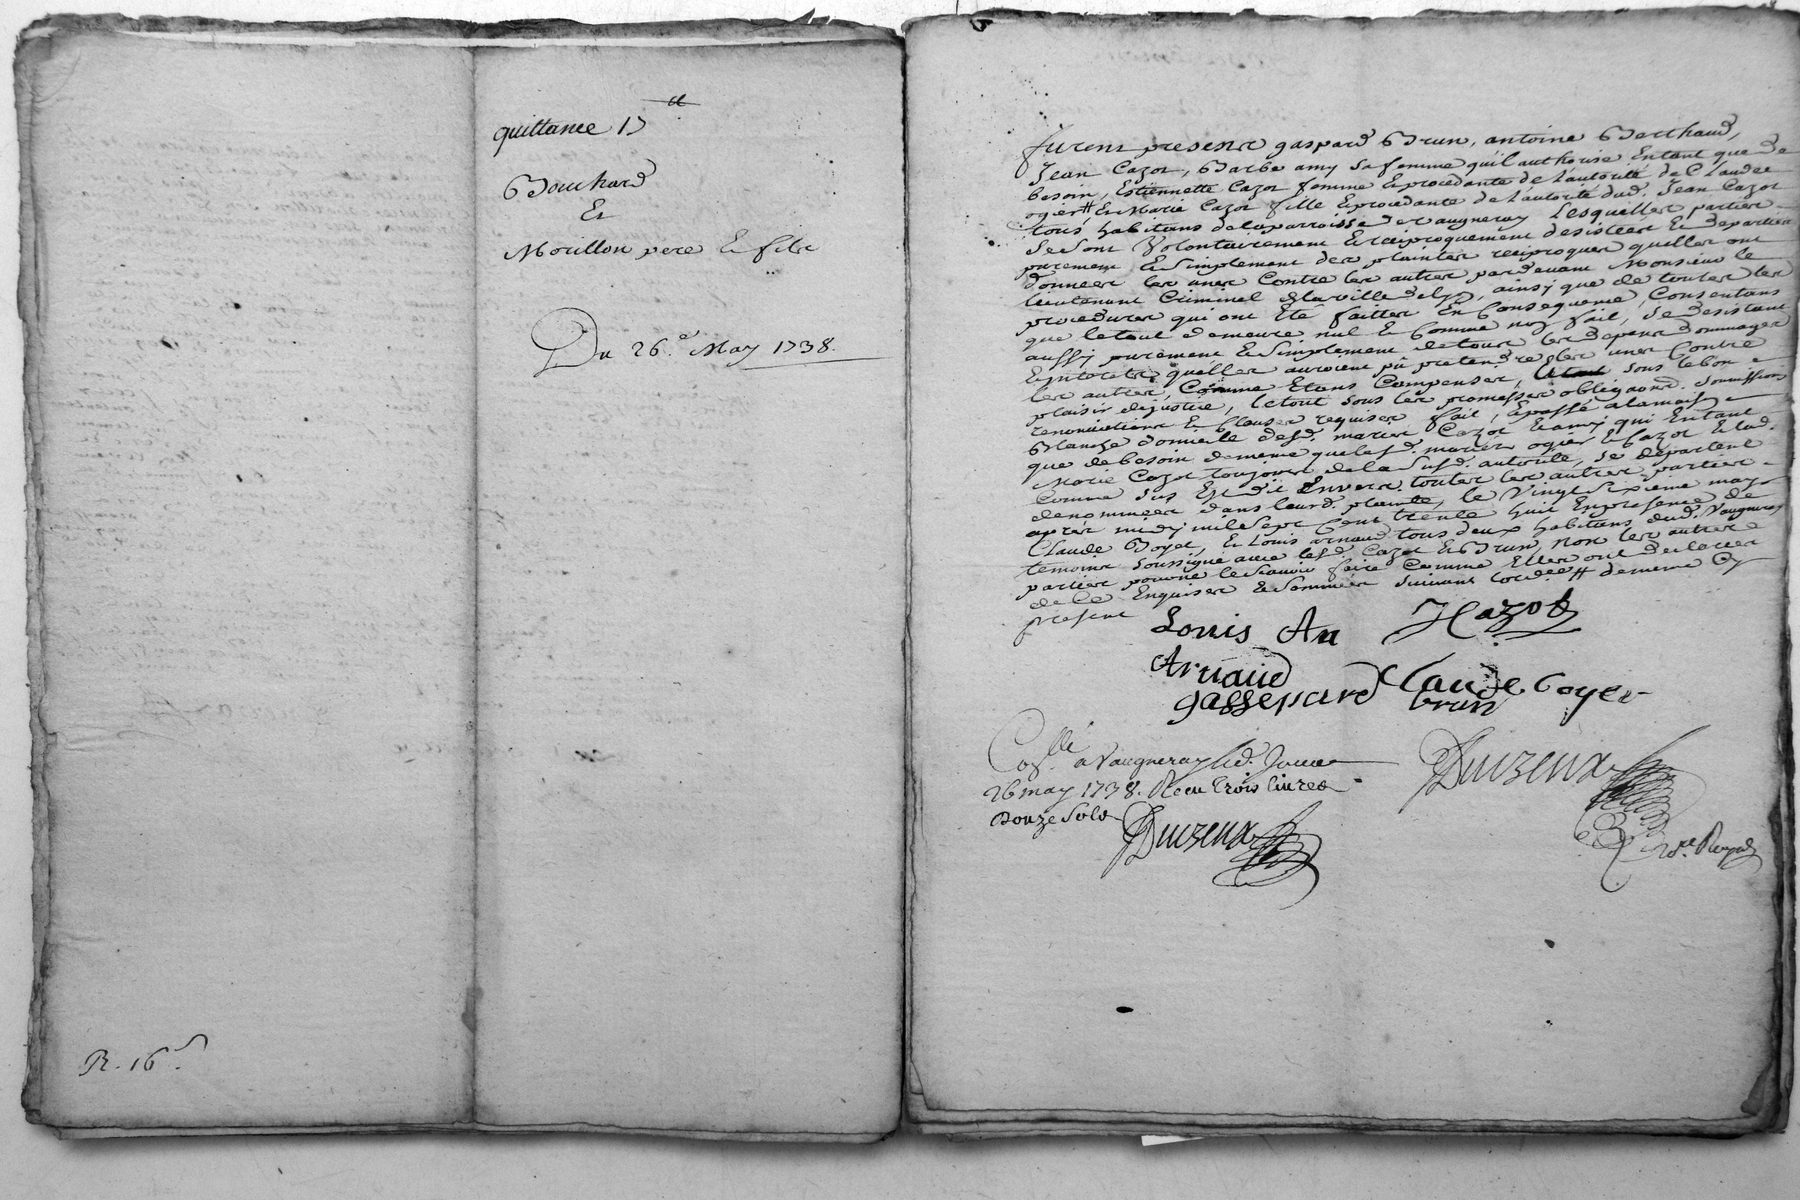 quittance 15 tt
Bouchard
Et
Morillon pere & fils
Du 26.e May 1738.
R. 16 s.
furent presents gaspard Brun, antoine Berthaud,
Jean Cazot, Barbe amy sa femme quil authorise Entant que de
besoin, Estiennette Cazot femme & procedante de Lautorité de Claude
ogier # Et Marie Cazot fille & procedante de Lautorité dud. Jean Cazot
tous habitans de la parroisse de vaugneray Lesquelles parties
se sont Volontairement & reciproquement desistees & departies
purement & simplement des plaintes reciproques quelles ont
données les unes Contre les autres pardevant Monsieur le
lieutenant Criminel de la ville de, ainsy que de toutes les
procedures qui ont été faittes En Consequence, Consentans
que le tout demeure nul & Comme non fait, se desistant
aussy purement & simplement de tous les depens dommages
& interets quelles auroient pû pretendre les unes Contre
les autres, Comme Etans Compenses, sous le bon
plaisir de justice, le tout sous les promesses obligaons. soumissions
renonciations & Clauses requises fait, & passé a la maison
Blanche domicile desd. mariés Cazot & amy qui Entant
que de besoin de meme que lesd. mariés ogier & Cazot & lad.
Marie Cazot toujours de la susd. autorité, se departent
Comme dus Est dit Envers toutes les autres parties
denommées dans leurd. plainte, le Vingt sixieme may
aprés midy mil sept Cent trente huit En presence de
Claude Boyet, & Louis arnaud tous deux habitans dud. Vaugneray
temoins soussignés avec lesd. Cazot & Brun, non les autres
parties pour ne le scavoir faire Comme Elles ont declarées
de Ce Enquises & sommées suivant lordce # de meme Cy
present
Louis An JCazot
Arnaud Claude boyet
gassepard brun
Collé a Vaugneray led. Jour
26 may 1738. Recu trois livres
Douze sols
Duzeux
Duzeux
Nre. Royal